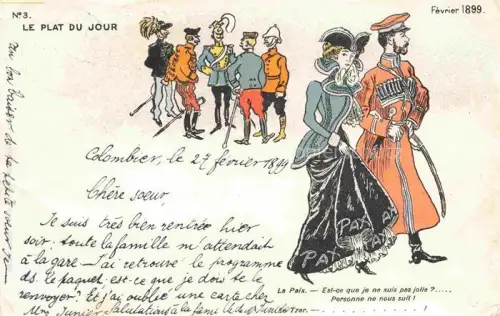 N°3.
LE PLAT DU JOUR
Février 1899.
un bon baiser de ta petite sœur
Colombier, le 27 février 1899
Chère soeur
Je suis très bien rentrée hier
soir; toute la famille m'attendait
à la gare – J'ai retrouvé le programme
ds. le paquet est-ce que je dois te le
renvoyer? Et j'ai oublié une carte chez
Mrs Junier Salutations à la famille
PAX PAX PAX
PAX PAX
La Paix. – Est-ce que je ne suis pas jolie ?.....
Personne ne nous suit !